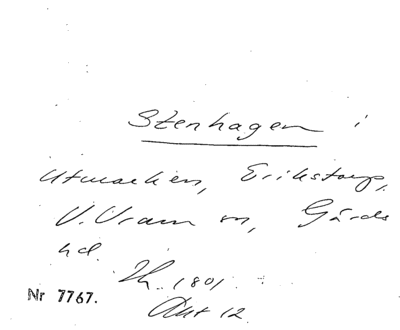 Stenhagen i
Utmarken, Erikstorp,
V. Vram sn, Gärds
hd.
1801.
Akt 12
Nr 7767.